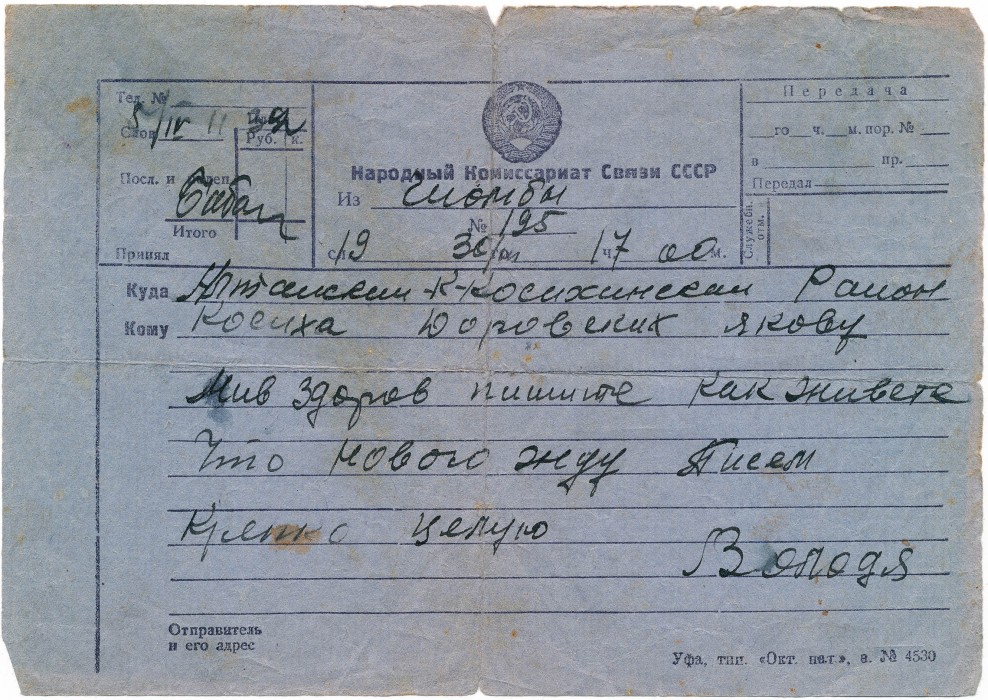 Тел. №
5/IV 11
Слов
Руб. к.
Посл. и
Итого
Принял
Народный Комиссариат Связи СССР
Из
№ 195
19 30 ч. 17 00 м.
Передача
го ч. м. пор. №
в пр.
Передал
Служебн. отм.
Куда Алтайский-К-Косихинский Район
Кому Косиха Доровских Якову
Жив здоров пишите как живете
Что нового жду Писем
Крепко целую
Володя
Отправитель
и его адрес
Уфа, тип. «Окт. нат.», з. № 4530